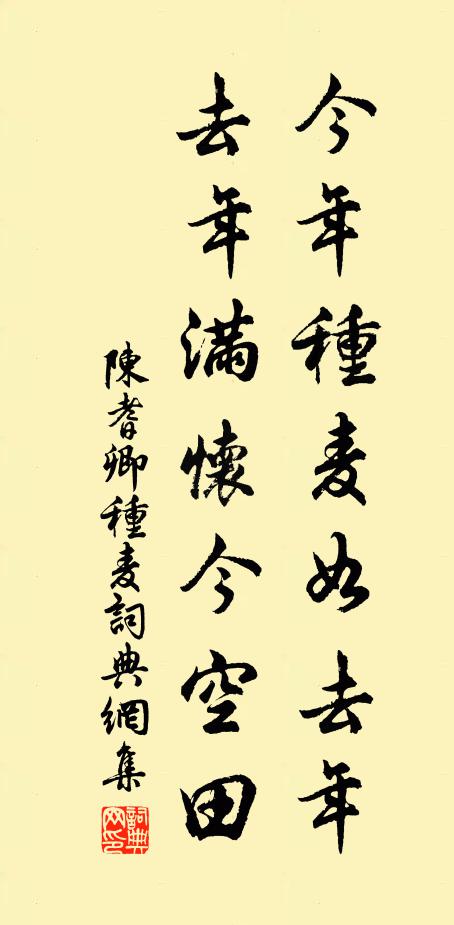 今年種麦如去年
去年滿懷今空田
陳耆卿種麦詞典網集
詞典網印